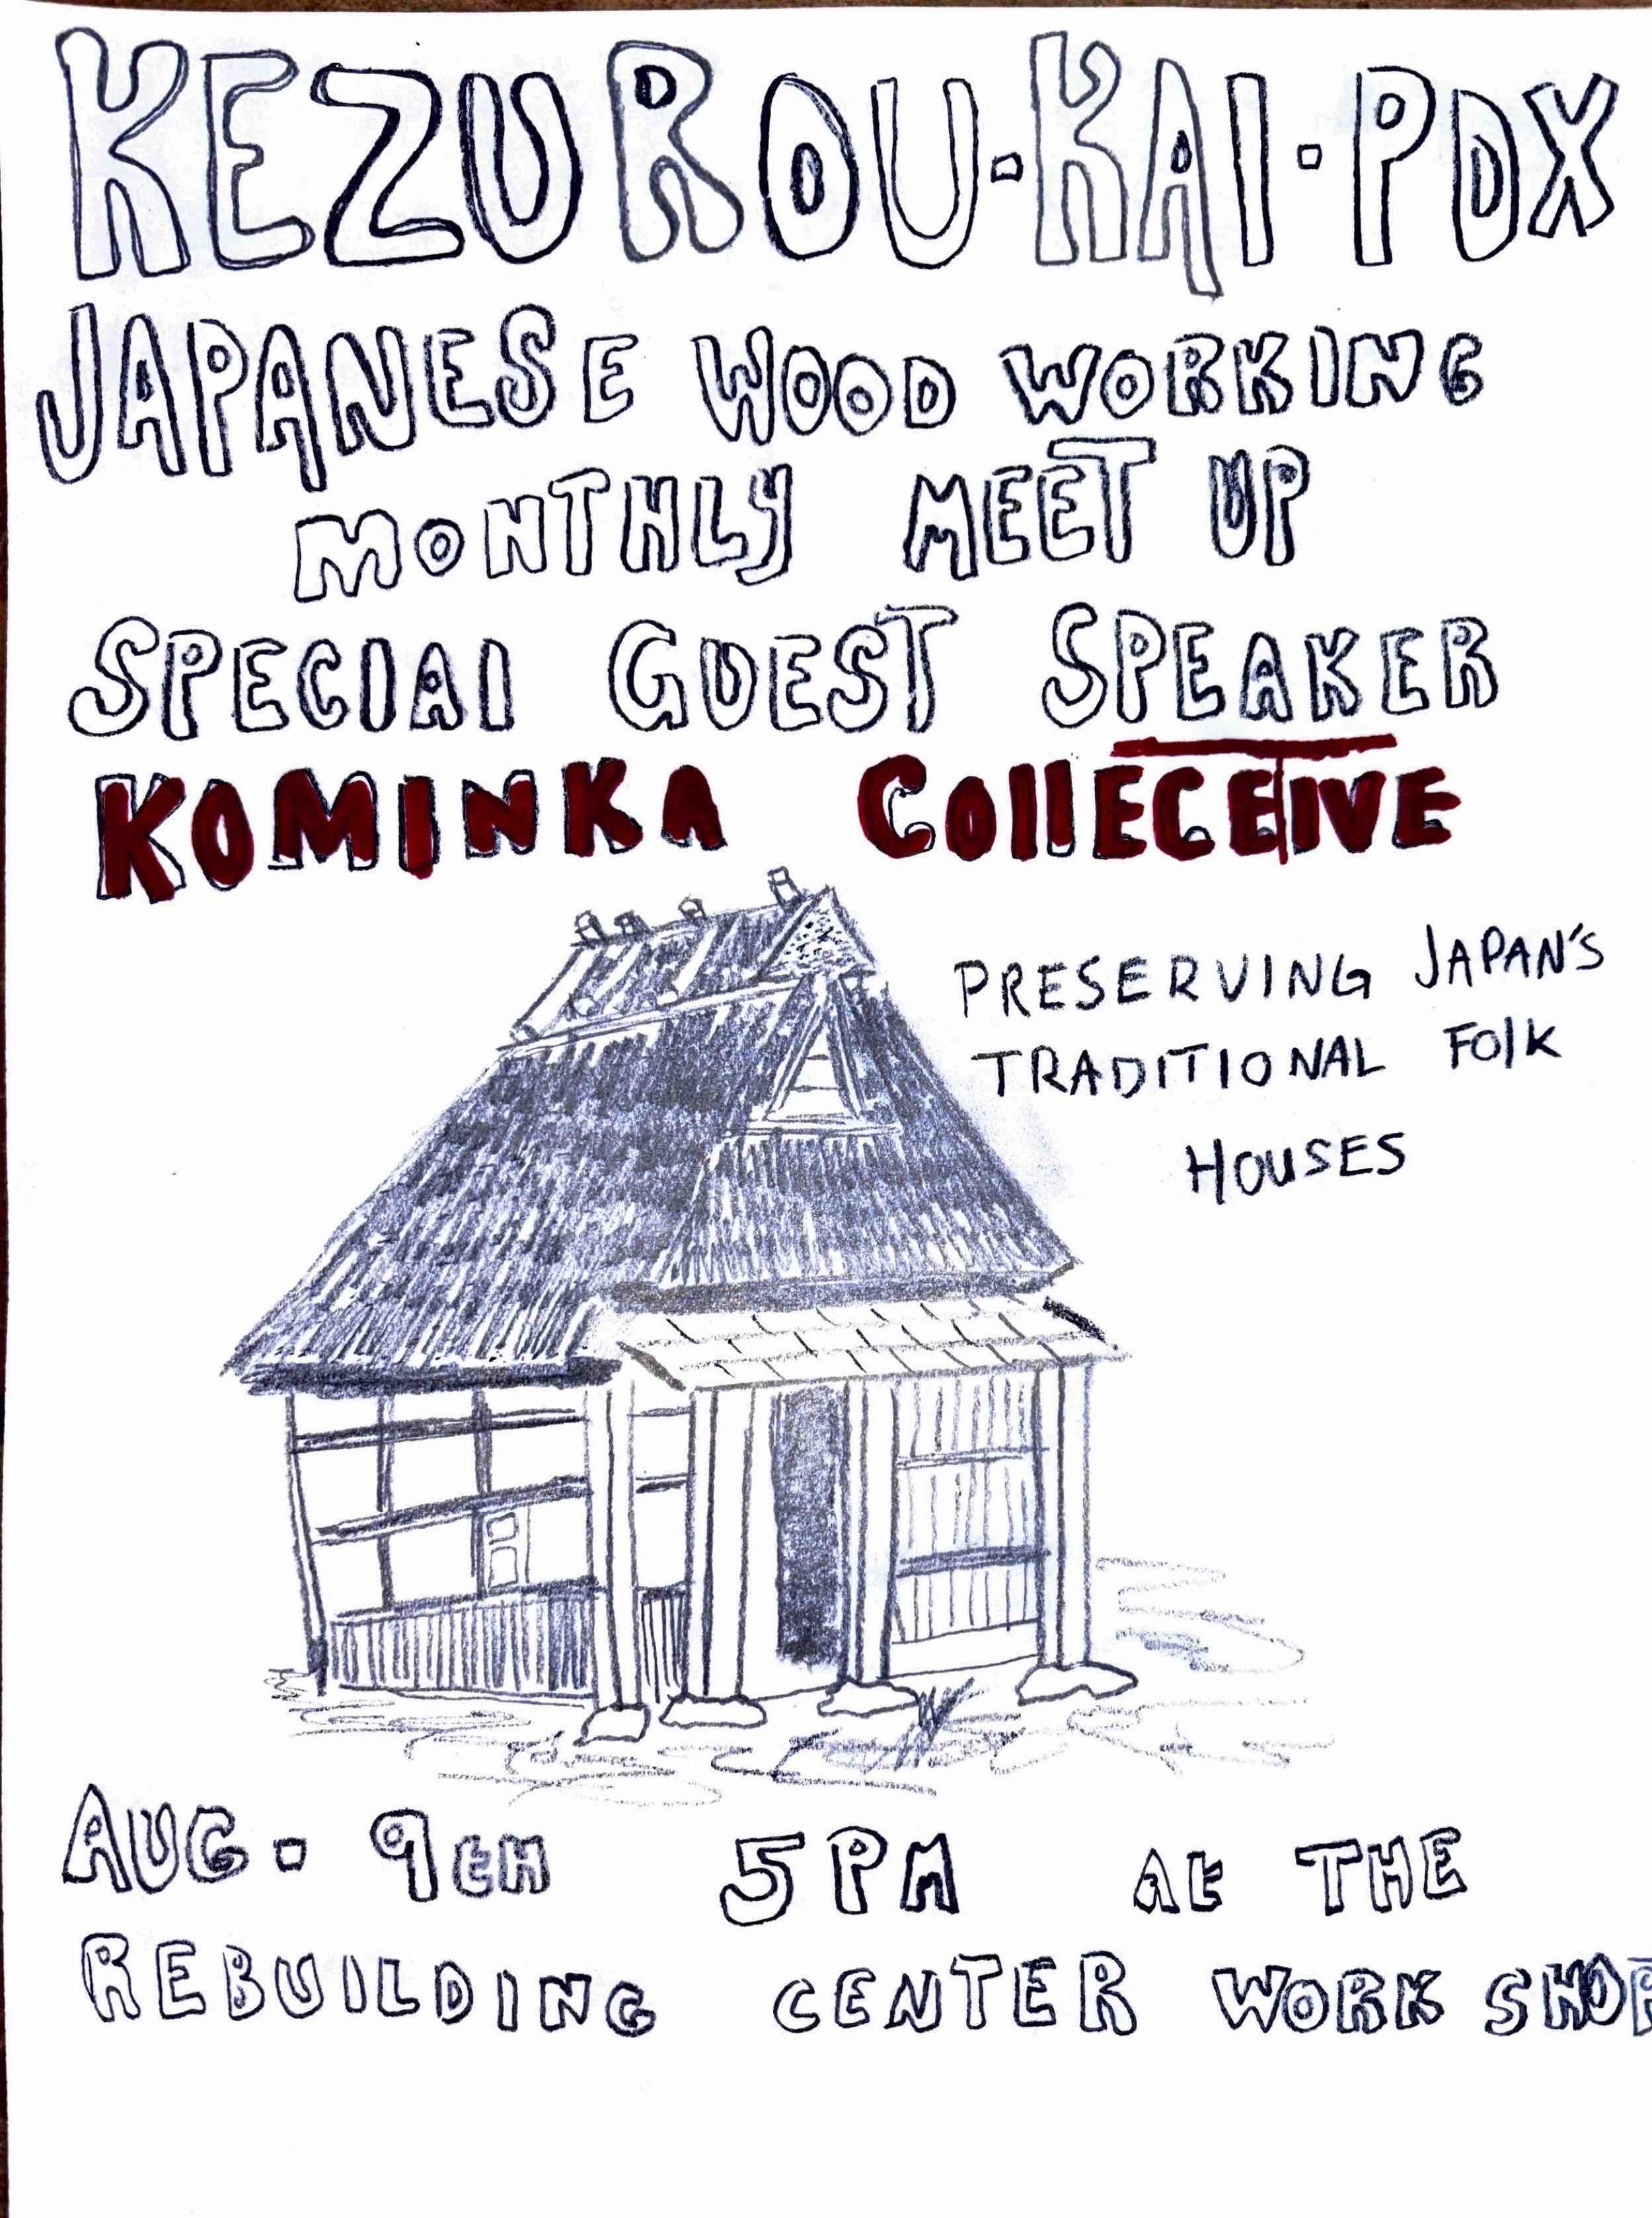 KEZUROU-KAI-PDX
JAPANESE WOOD WORKING
MONTHLY MEET UP
SPECIAl GUEST SPEAKER
KOMINKA COllECTIVE
PRESERVING JAPAN'S
TRADITIONAL FOlK
HOUSES
AUG. 9tH 5PM At THE
REBUILDING CENTER WORK SHOP